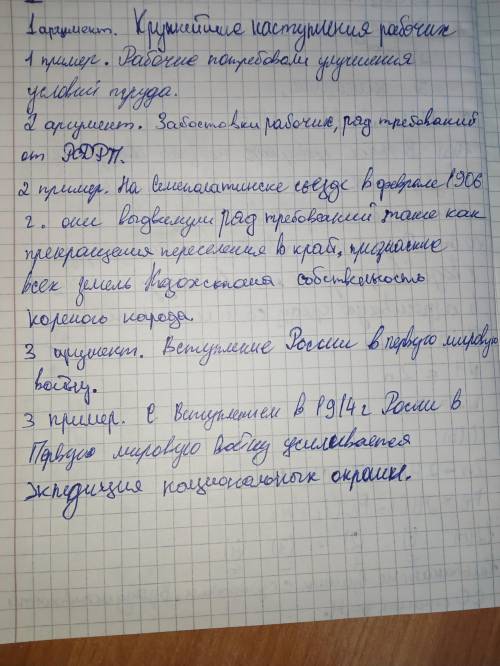 1 аргумент. Крупнейшие наступления рабочих
1 пример. Рабочие потребовали улучшения
условий труда.
2 аргумент. Забостовки рабочих, ряд требований
от РСДРП.
2 пример. На Семепалатинске съезде в феврале 1906
г. они выдвинули ряд требований такие как
прекращения переселения в край, признание
всех земель Казахстана собственность
кореного народа
3 аргумент. Вступление России в первую мировую
войну.
3 пример. С вступлением в 1914 г Росии в
Первую мировую войну усиливается
национальных окраин.